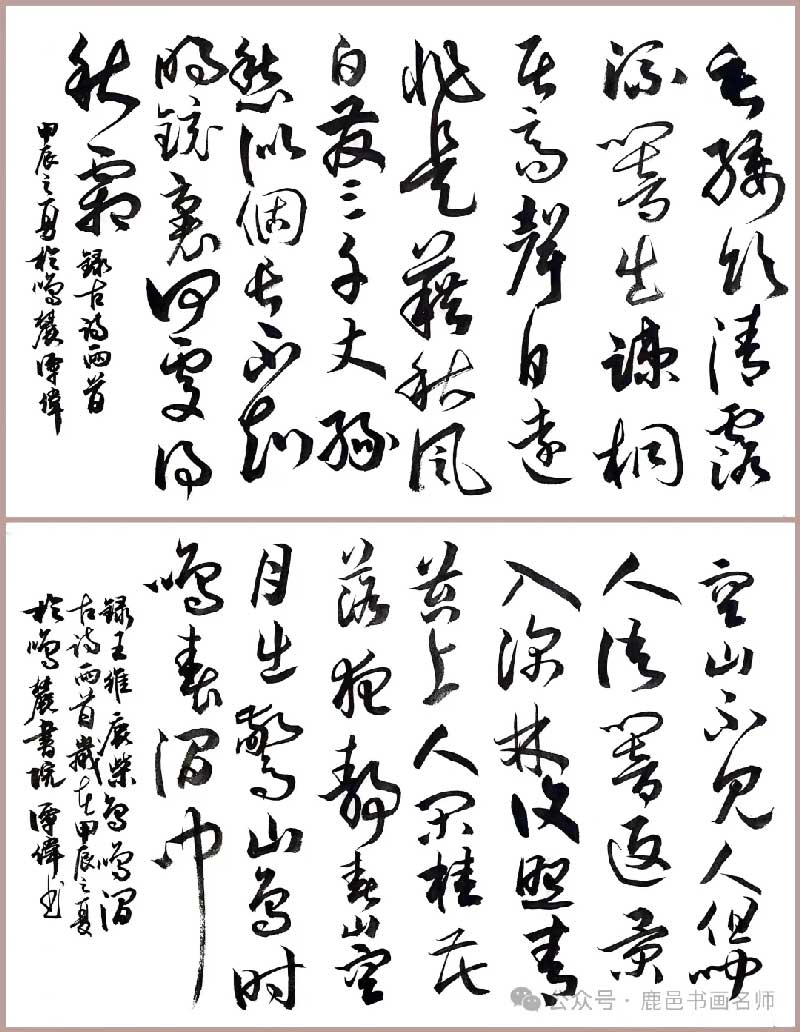 垂緌飲清露
流響出疎桐
居高聲自遠
非是藉秋風
白髮三千丈緣
愁似個長不知
明鏡裏何處得
秋霜
錄古詩兩首
甲辰之夏於鳴鹿偉
空山不見人但聞
人語響返景
入深林復照青
苔上人閑桂花
落夜靜春山空
月出驚山鳥時
鳴春澗中
錄王維鹿柴鳥鳴澗
古詩兩首歲在甲辰之夏
於鳴鹿書院偉書
公众号·鹿邑书画名师